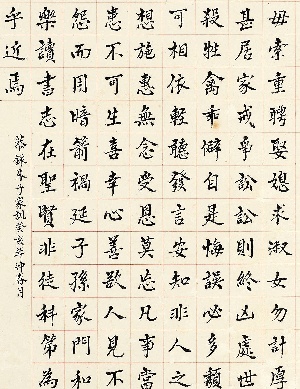 毋索重聘娶媳求淑女勿計厚
甚居家戒爭訟訟則終凶處世
殺牲禽乖僻自是悔誤必多頹
可相依輕聽發言安知非人之
想施惠無念受恩莫忘凡事當
患不可生喜幸心善欲人見不
怨而用暗箭禍延子孫家門和
樂讀書志在聖賢非徒科第為
乎近焉
恭錄朱子家訓癸亥年仲春月